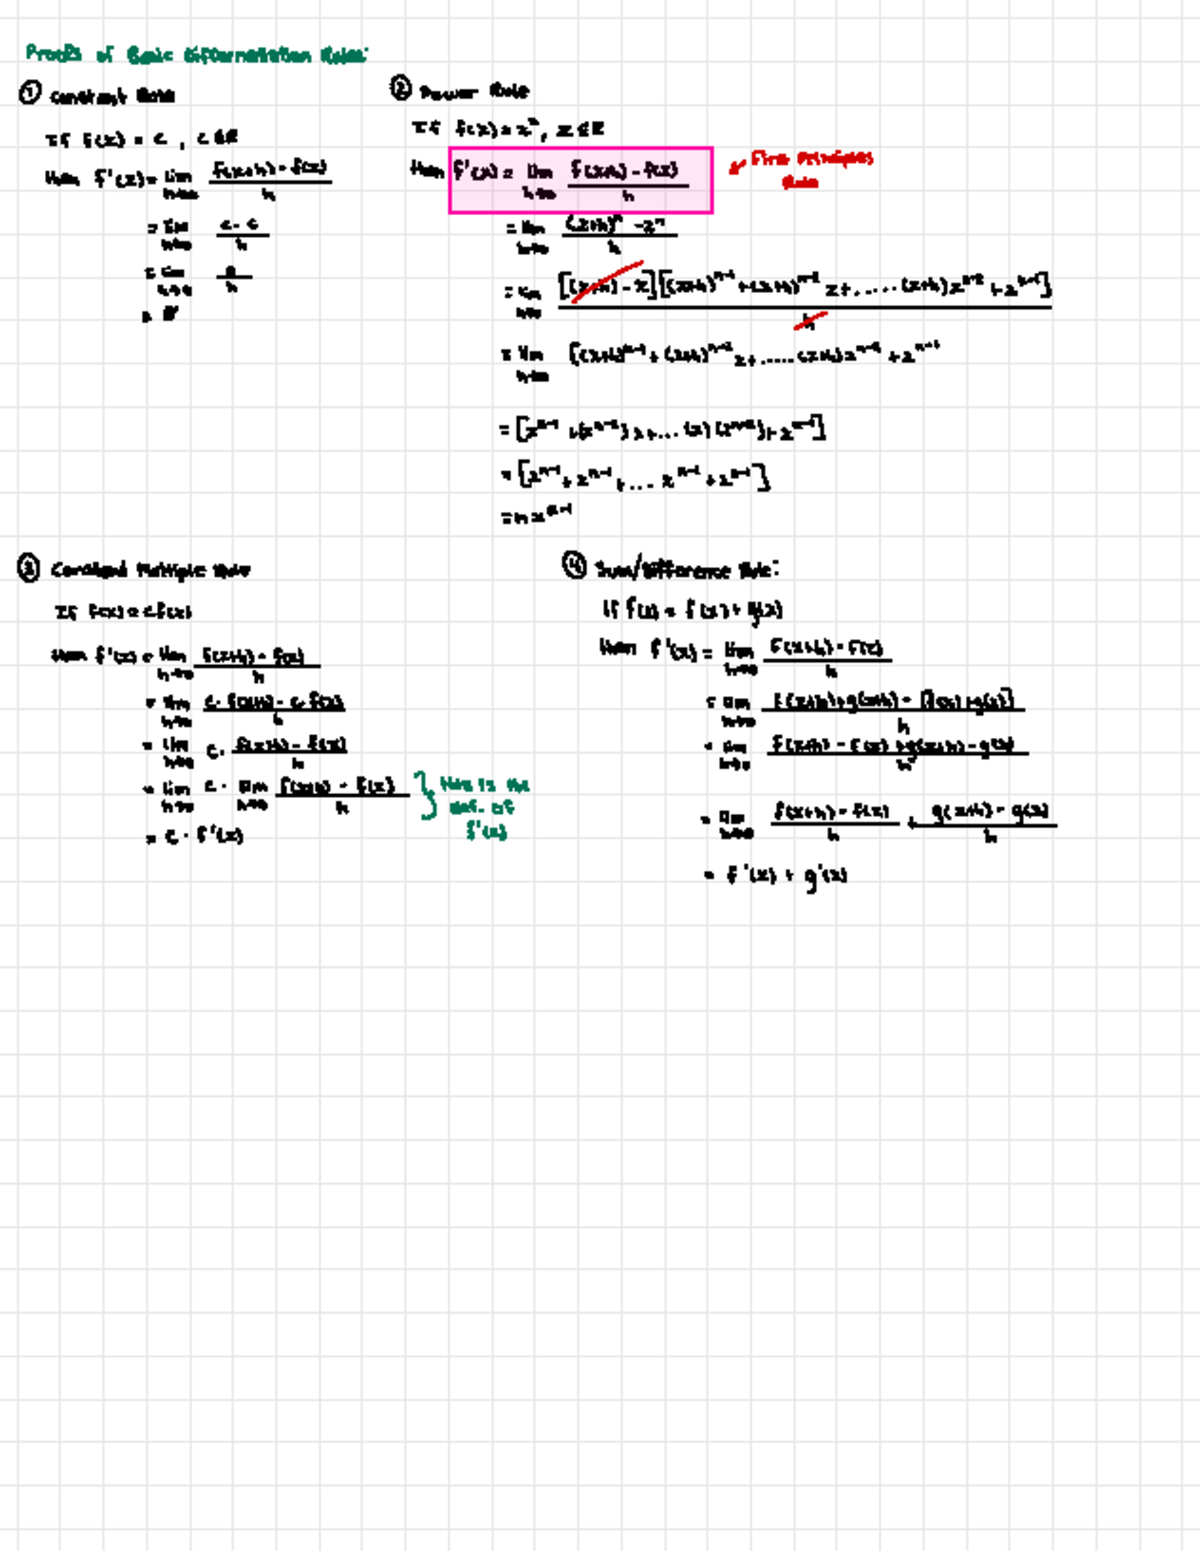 Proofs of Basic Differentiation Rules:
① Constant Rule
If f(x) = c, c∈R
then f'(x) = lim h→0 f(x+h) - f(x) / h
= lim h→0 c - c / h
= lim h→0 0 / h
= 0
② Power Rule
If f(x) = x^n, x∈R
then f'(x) = lim h→0 f(x+h) - f(x) / h
First Principles
Rule
= lim h→0 (x+h)^n - x^n / h
= lim h→0 [(x+h) - x][(x+h)^n-1 + (x+h)^n-2 x + ..... (x+h)x^n-2 + x^n-1] / h
= lim h→0 [(x+h)^n-1 + (x+h)^n-2 x + ..... (x+h)x^n-2 + x^n-1
= [x^n-1 + (x^n-2)x + ... (x)(x^n-2) + x^n-1]
= [x^n-1 + x^n-1 + ... x^n-1 + x^n-1]
= nx^n-1
③ Constant Multiple Rule
If f(x) = cf(x)
then f'(x) = lim h→0 f(x+h) - f(x) / h
= lim h→0 c·f(x+h) - c·f(x) / h
= lim h→0 c· f(x+h) - f(x) / h
= lim h→0 c· lim h→0 f(x+h) - f(x) / h
} this is the
def. of
f'(x)
= c·f'(x)
④ Sum/Difference Rule:
If f(x) = f(x) + g(x)
then f'(x) = lim h→0 F(x+h) - F(x) / h
= lim h→0 f(x+h)+g(x+h) - [f(x)+g(x)] / h
= lim h→0 f(x+h) - f(x) + g(x+h) - g(x) / h
= lim h→0 f(x+h) - f(x) / h + g(x+h) - g(x) / h
= f'(x) + g'(x)